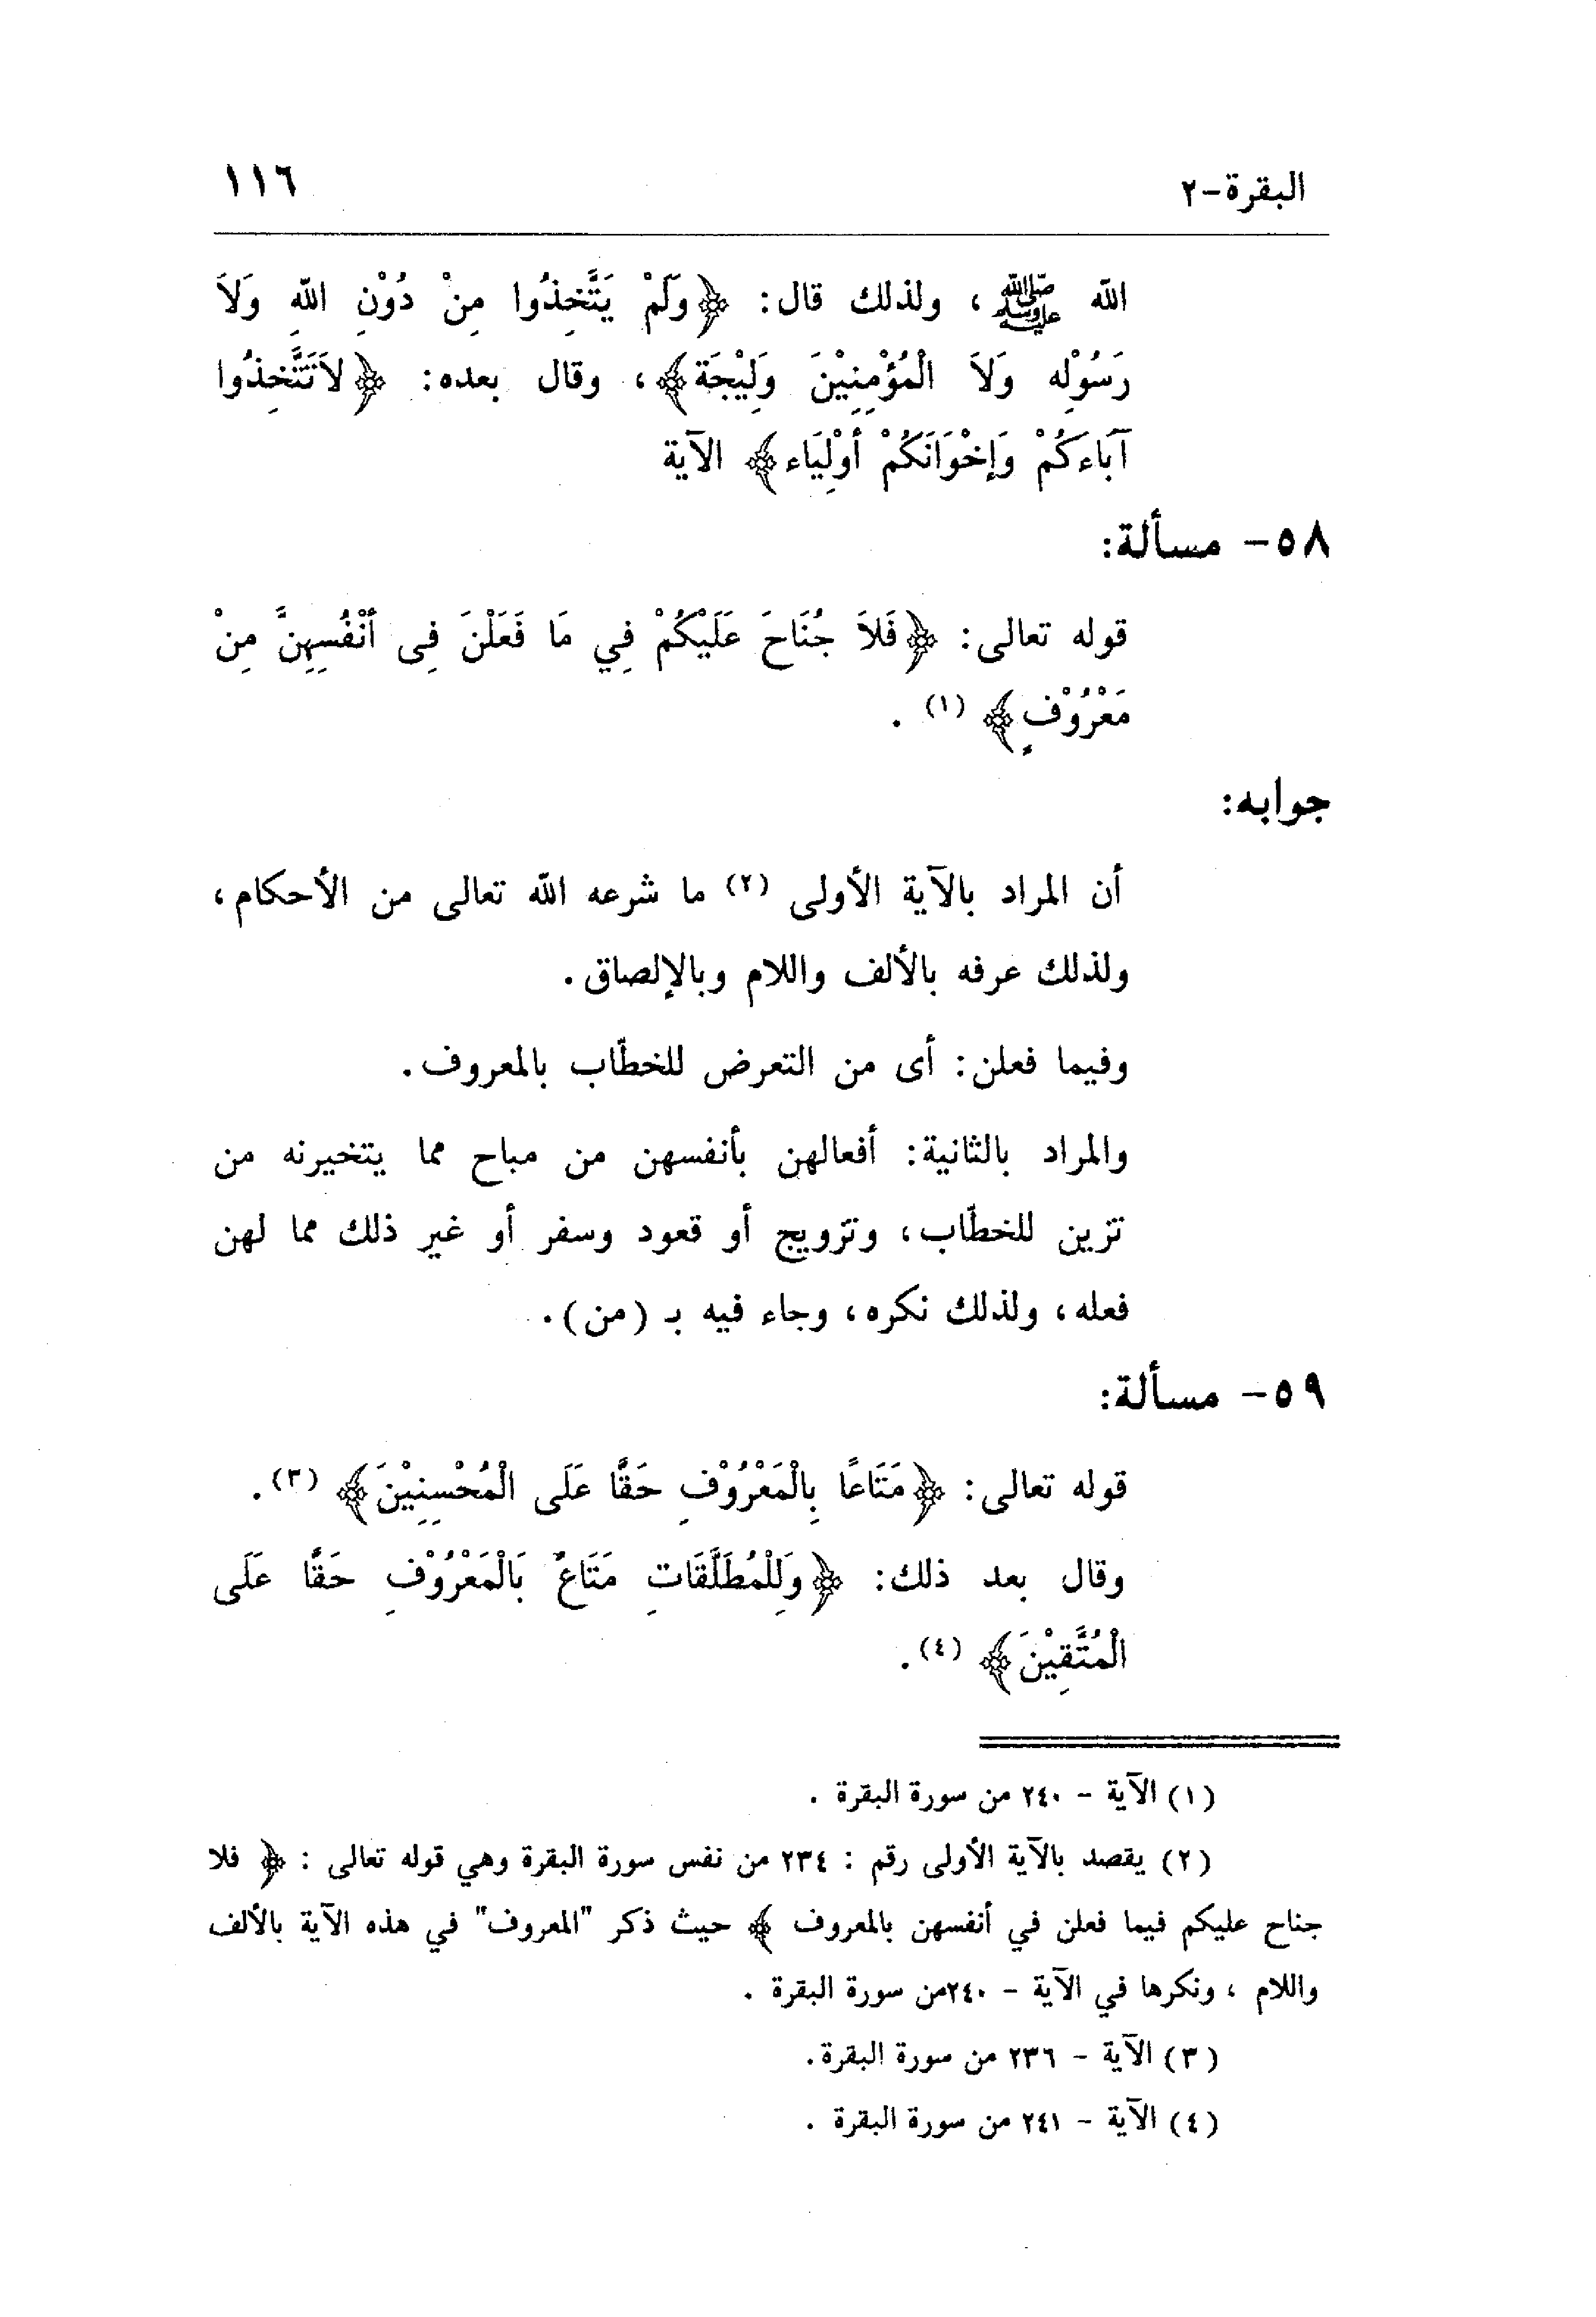 البقرة-٢ ١١٦
الله ﷺ ، ولذلك قال: ﴿وَلَمْ يَتَّخِذُوا مِنْ دُوْنِ اللهِ وَلاَ
رَسُوْلِه وَلاَ الْمُؤْمِنِيْنَ وَلِيْجَة﴾، وقال بعده: ﴿لاَتَتَّخِذُوا
آبَاءَكُمْ وَإخْوَانَكُمْ أوْلِيَاء﴾ الآية
٥٨- مسألة:
قوله تعالى: ﴿فَلاَ جُنَاحَ عَلَيْكُمْ فِي مَا فَعَلْنَ فِى أنْفُسِهِنَّ مِنْ
مَعْرُوْفٍ﴾ (١) .
جوابه:
أن المراد بالآية الأولى (٢) ما شرعه الله تعالى من الأحكام،
ولذلك عرفه بالألف واللام وبالإلصاق.
وفيما فعلن: أى من التعرض للخطّاب بالمعروف.
والمراد بالثانية: أفعالهن بأنفسهن من مباح مما يتخيرنه من
تزين للخطّاب، وتزويج أو قعود وسفر أو غير ذلك مما لهن
فعله، ولذلك نكره، وجاء فيه بـ (من).
٥٩- مسألة:
قوله تعالى: ﴿مَتَاعًا بِالْمَعْرُوْفِ حَقًّا عَلَى الْمُحْسِنِيْنَ﴾ (٣).
وقال بعد ذلك: ﴿وَلِلْمُطَلَّقَاتِ مَتَاعٌ بَالْمَعْرُوْفِ حَقًّا عَلَى
الْمُتَّقِيْنَ﴾ (٤).
(١) الآية - ٢٤٠ من سورة البقرة .
(٢) يقصد بالآية الأولى رقم : ٢٣٤ من نفس سورة البقرة وهي قوله تعالى : ﴿ فلا
جناح عليكم فيما فعلن في أنفسهن بالمعروف ﴾ حيث ذكر "المعروف" في هذه الآية بالألف
واللام ، ونكرها في الآية - ٢٤٠من سورة البقرة .
(٣) الآية - ٢٣٦ من سورة البقرة.
(٤) الآية - ٢٤١ من سورة البقرة .